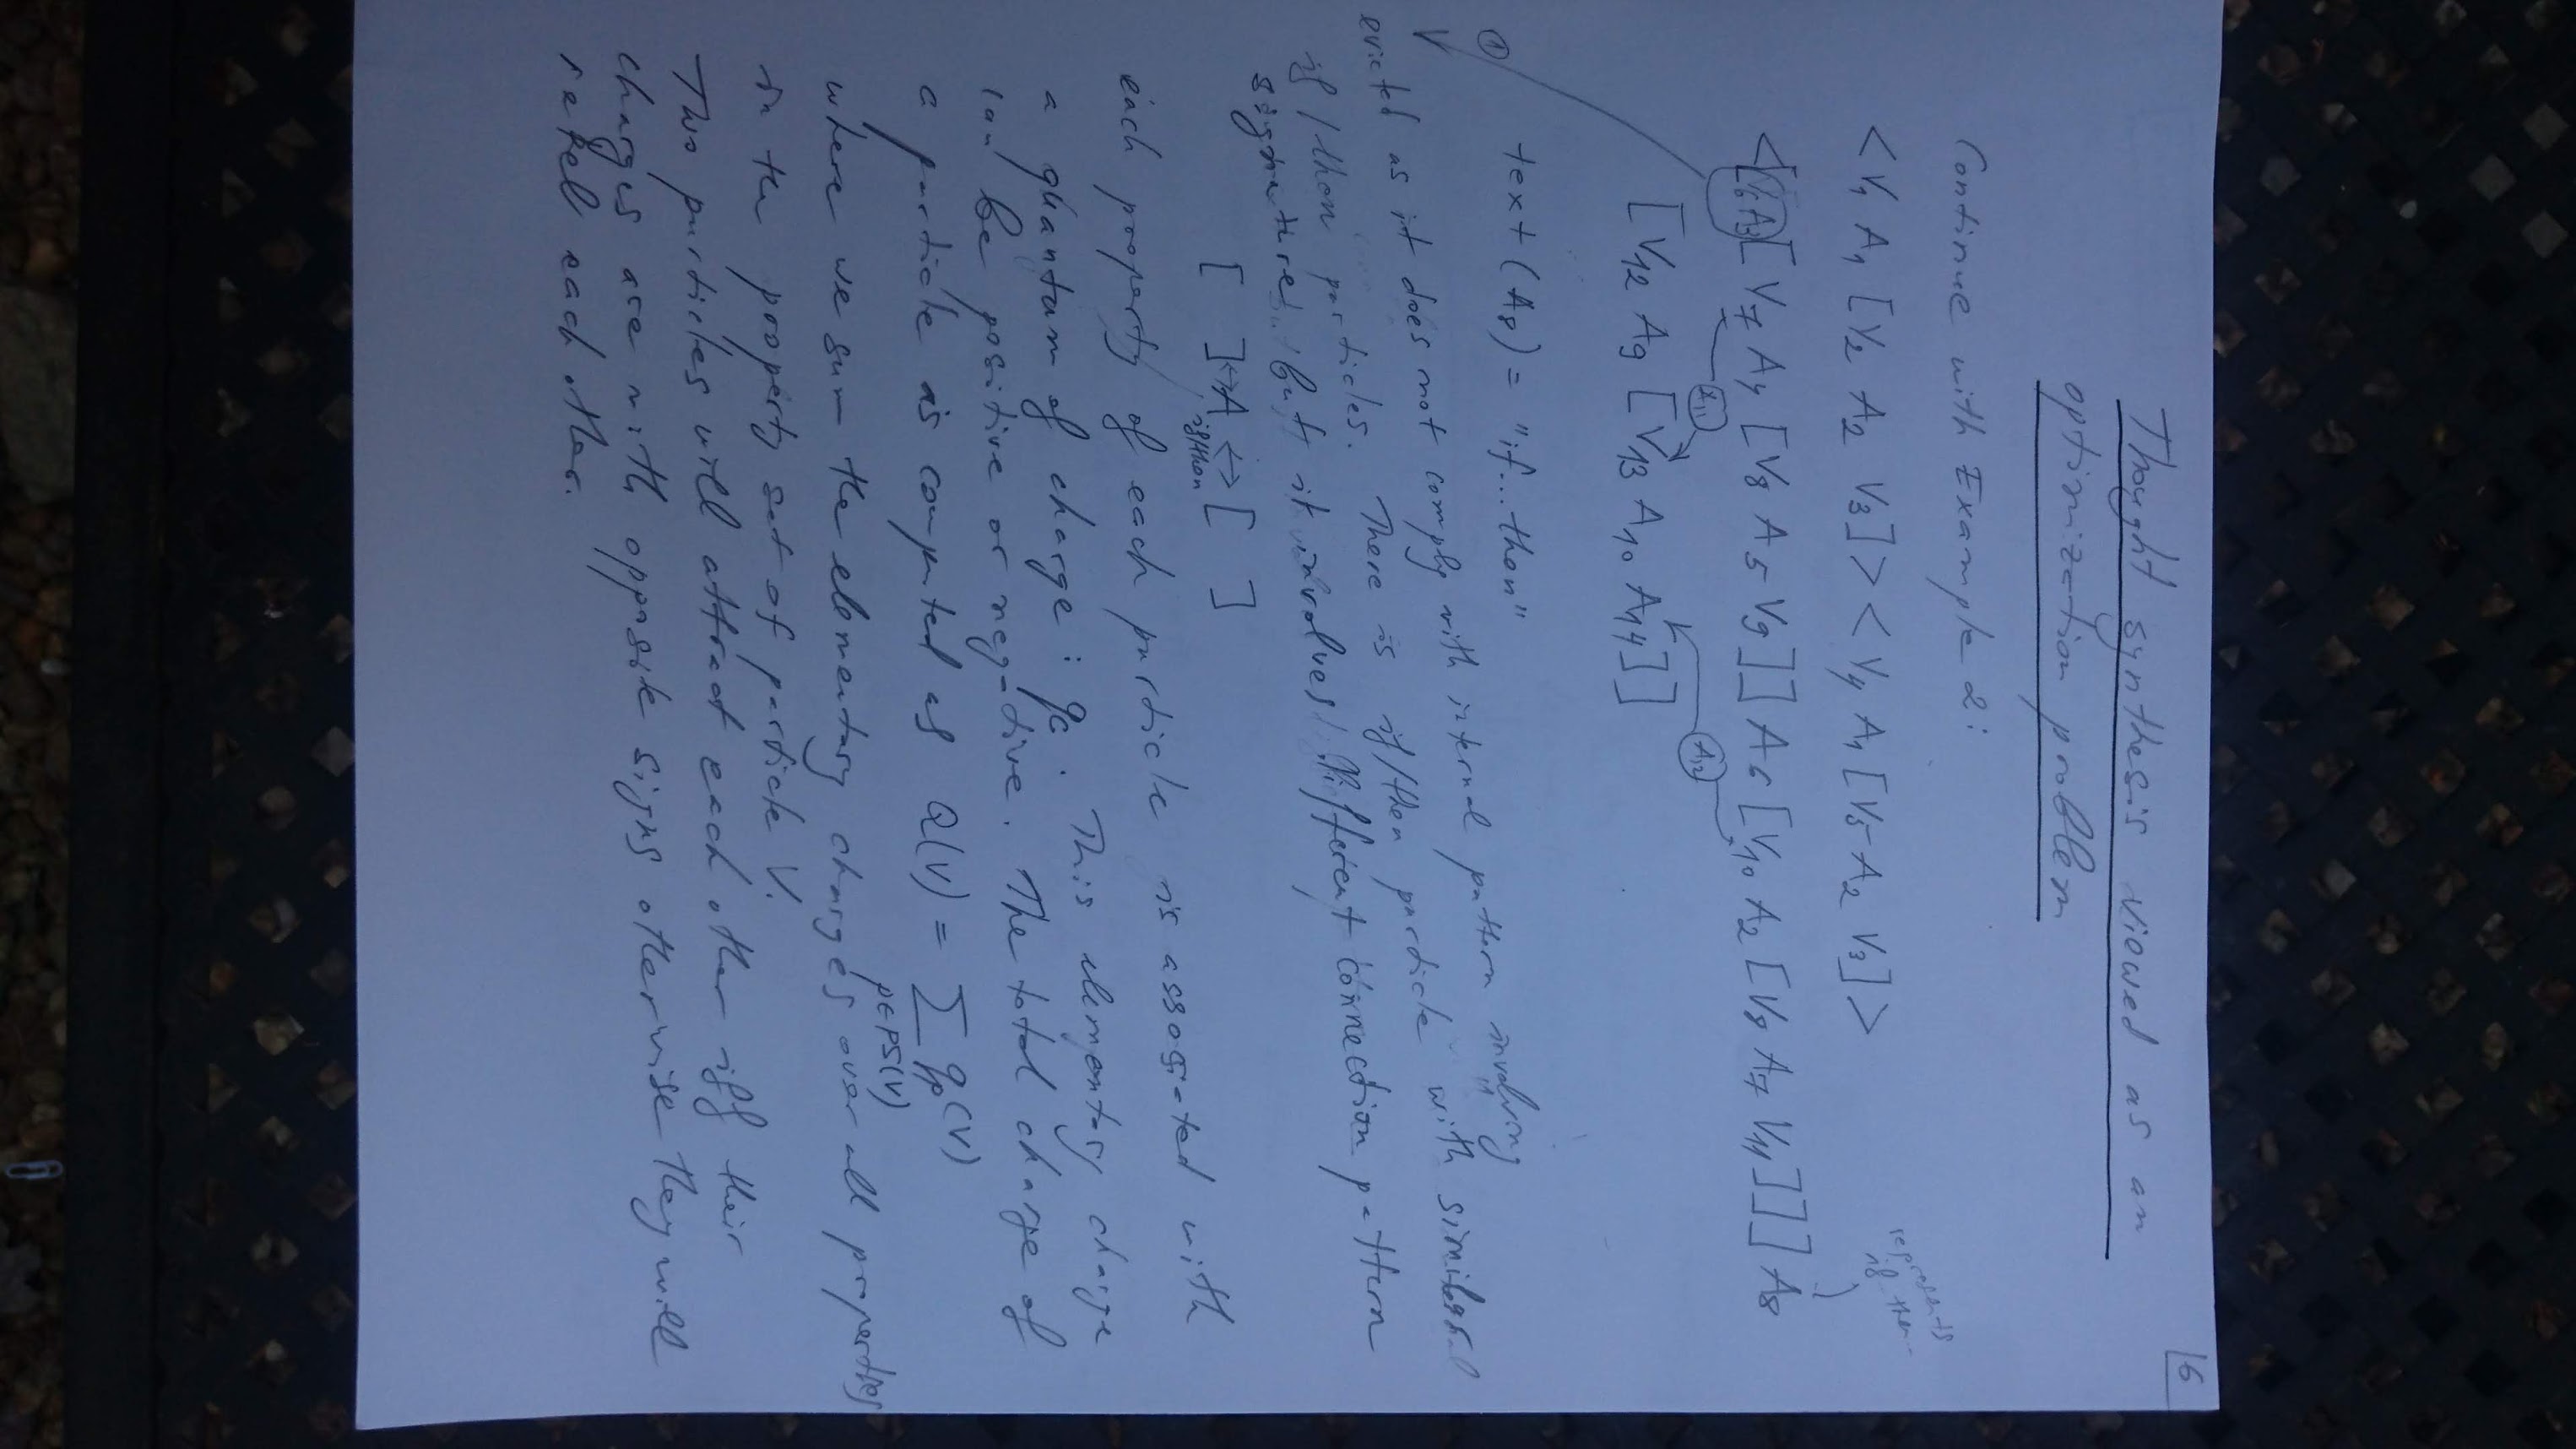 6
Thought synthesis viewed as an
optimization problem
Continue with Example 2:
represents
if then
<V1 A1 [V2 A2 V3]> <V4 A1 [V5 A2 V3]>
<[V6 A3 [V7 A4 [V8 A5 V9]] A6 [V10 A2 [V8 A7 V11]]] A8
A11
A12
[V12 A9 [V13 A10 A14]]
text (A8) = "if...then"
①
evicted as it does not comply with internal pattern involving
if/then particles. There is if/then particle with similar
signature but it involves different connection pattern
[ ] <-> A if/then <-> [ ]
each property of each particle is associated with
a quantum of charge: qc. This elementary charge
can be positive or negative. The total charge of
a particle is computed as Q(V) = ∑ qp(V)
p∈PS(V)
where we sum the elementary charges over all properties
in the property set of particle V.
Two particles will attract each other iff their
charges are with opposite signs otherwise they will
repel each other.